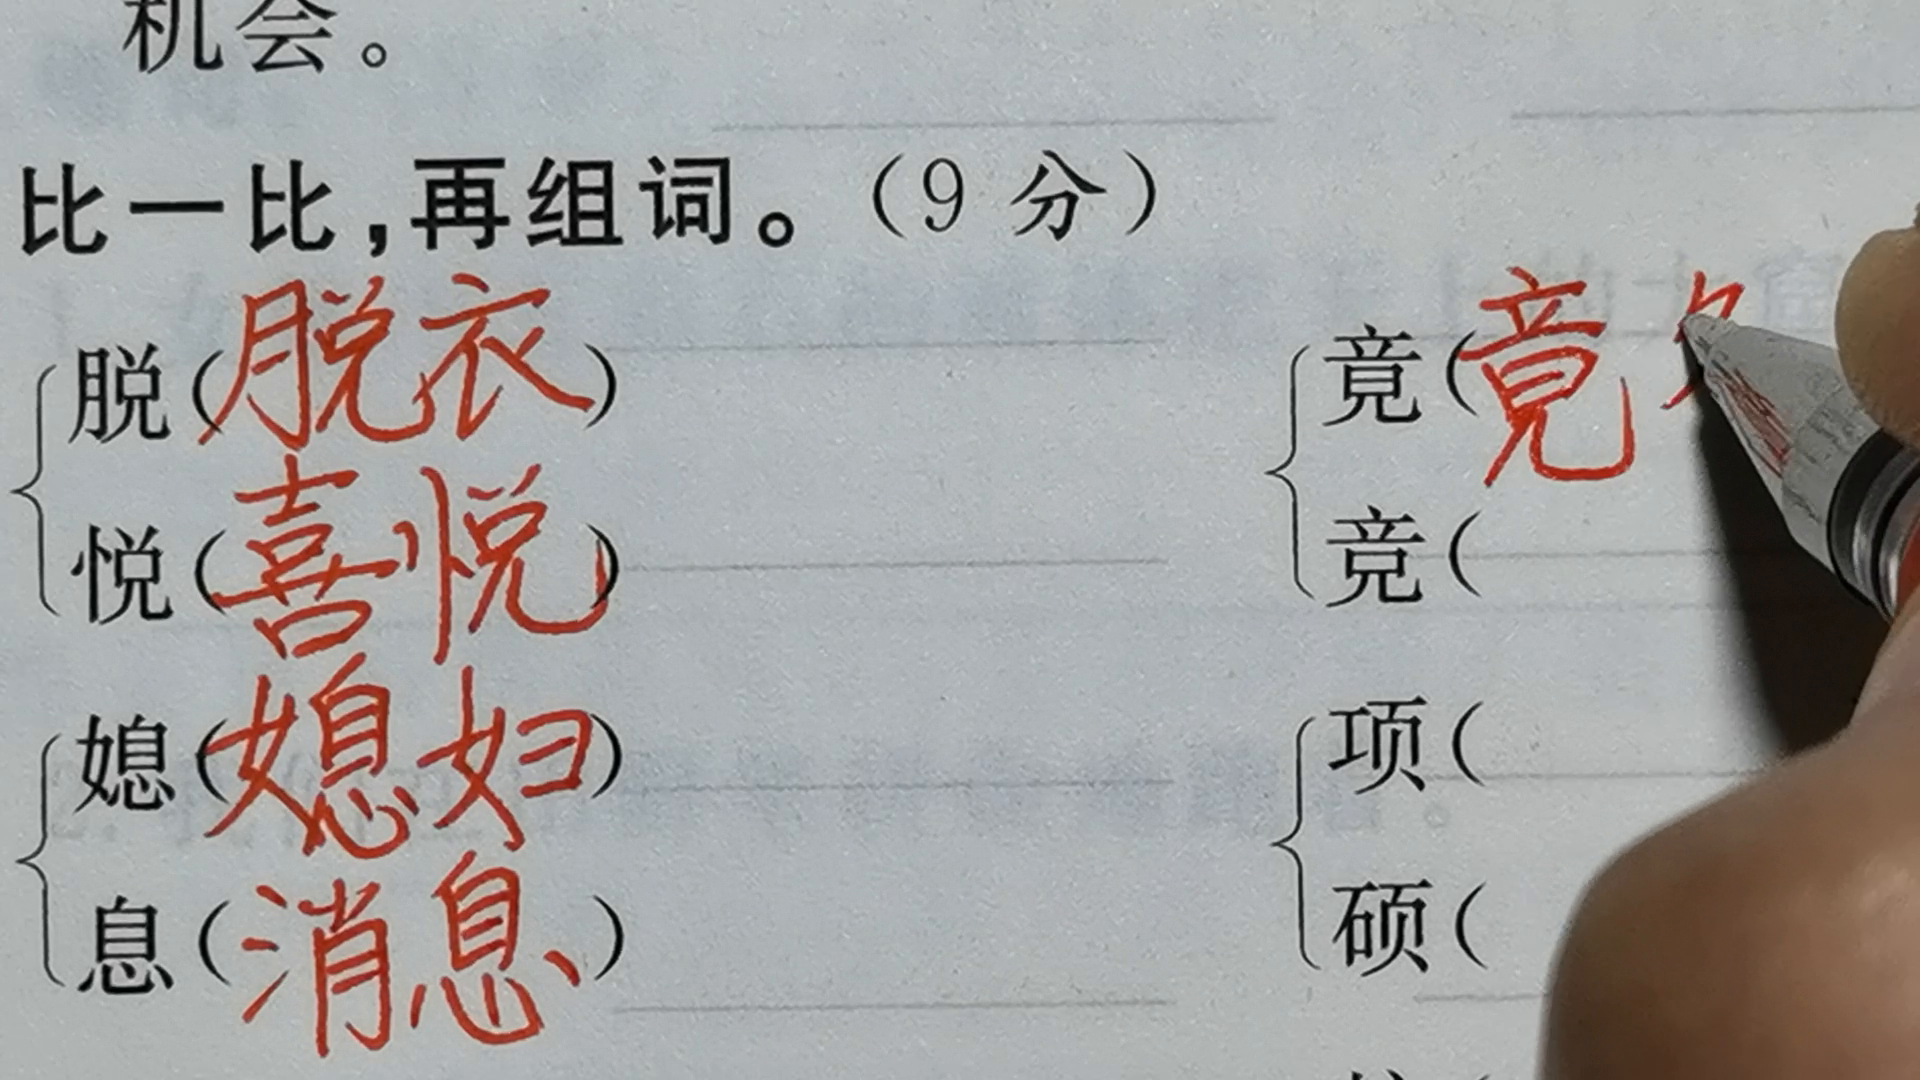 机会。
比一比,再组词。(9 分)
脱(脱衣)
悦(喜悦)
媳(媳妇)
息(消息)
竟(竟
竞(
项(
硕(